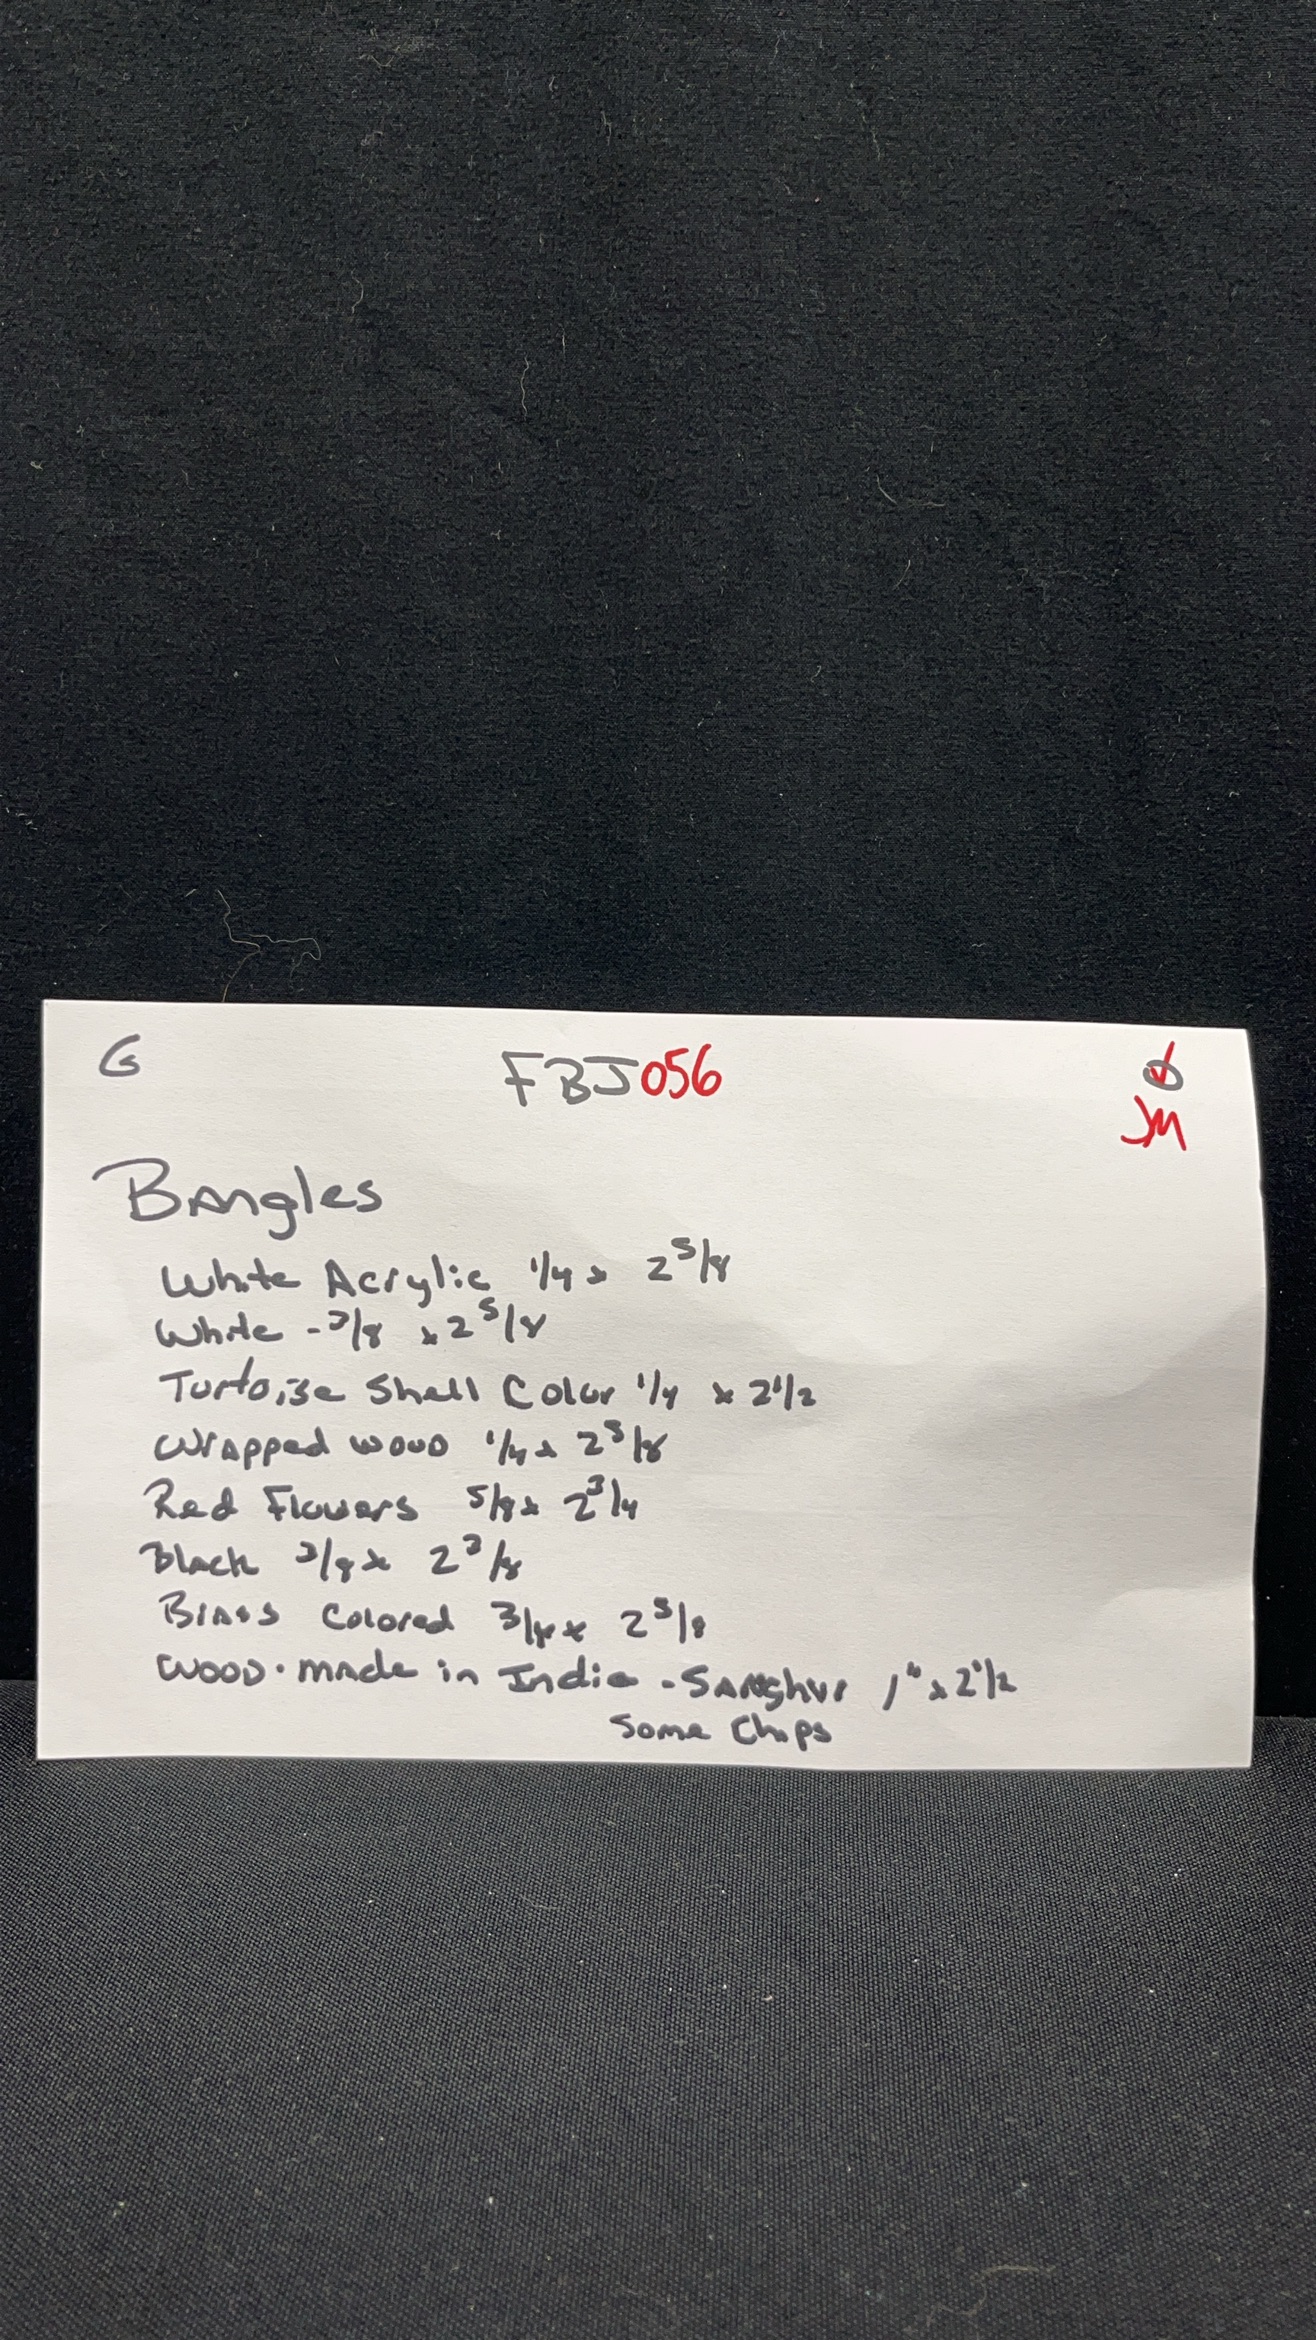 G FBJ056
JM
Bangles
White Acrylic 1/4 x 2 5/8
White - 3/8 x 2 5/8
Turtoise Shell Color 1/4 x 2 1/2
Wrapped wood 1/4 x 2 5/8
Red Flowers 5/8 x 2 3/4
Black 3/8 x 2 3/8
Brass Colored x 2 5/8
Wood. made in India - 1" x 2 1/2
Some Chips